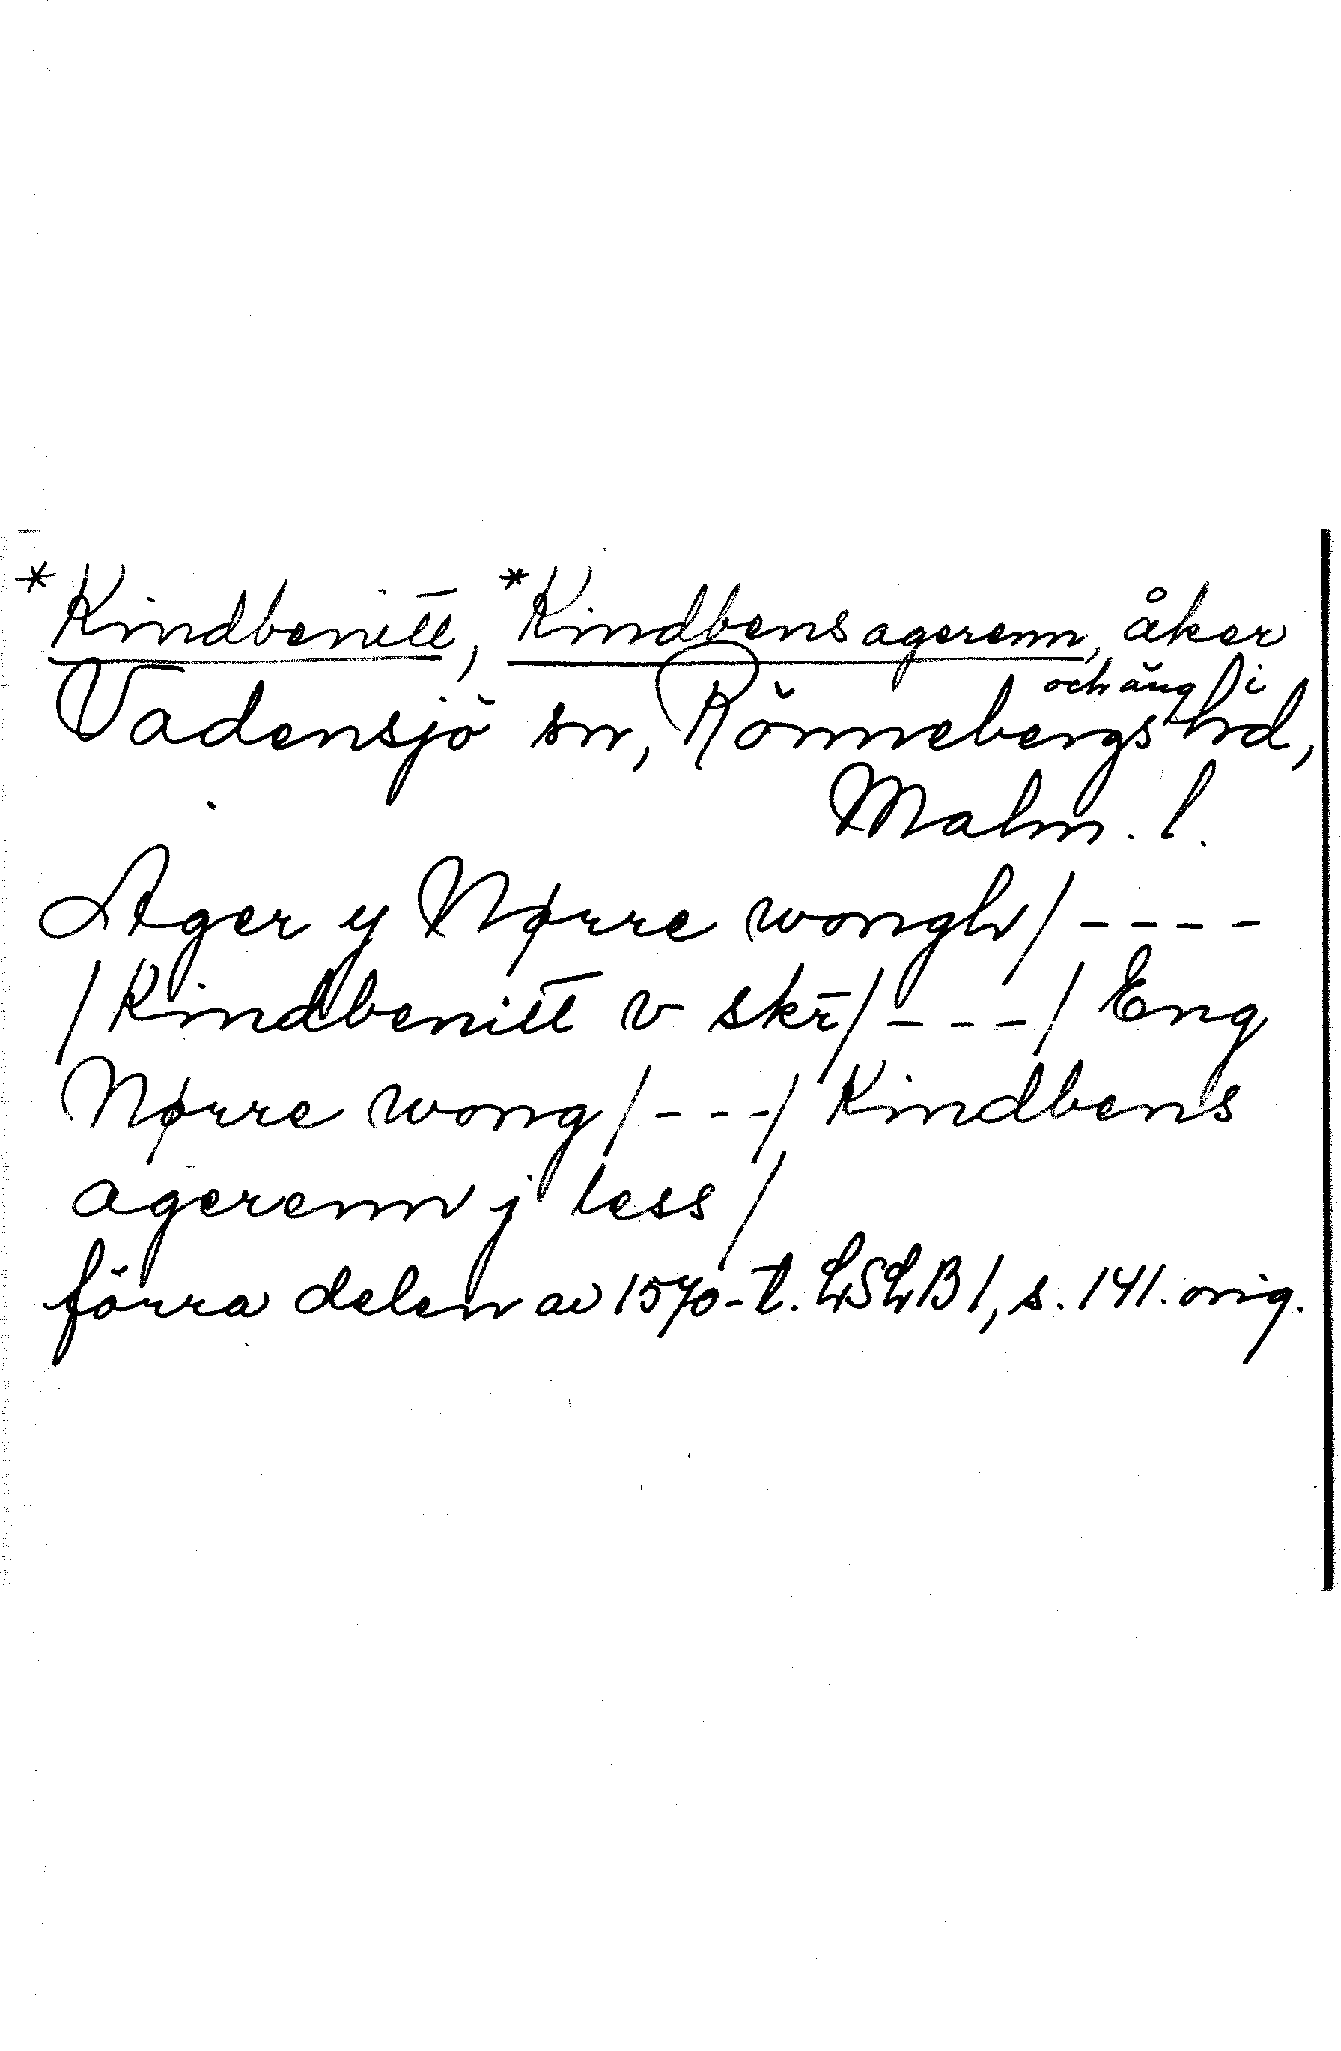 *Kindbenitt, *Kindbens agerenn, åker
och äng i
Vadensjö sn, Rönnebergs hd,
Malm. l.
Ager y Nørre wongh/----
/Kindbenitt v skr̄/---/ Eng
Nørre wong/---/ Kindbens
agerenn j less/
förra delen av 1570-t. LSLB 1, s. 141. orig.